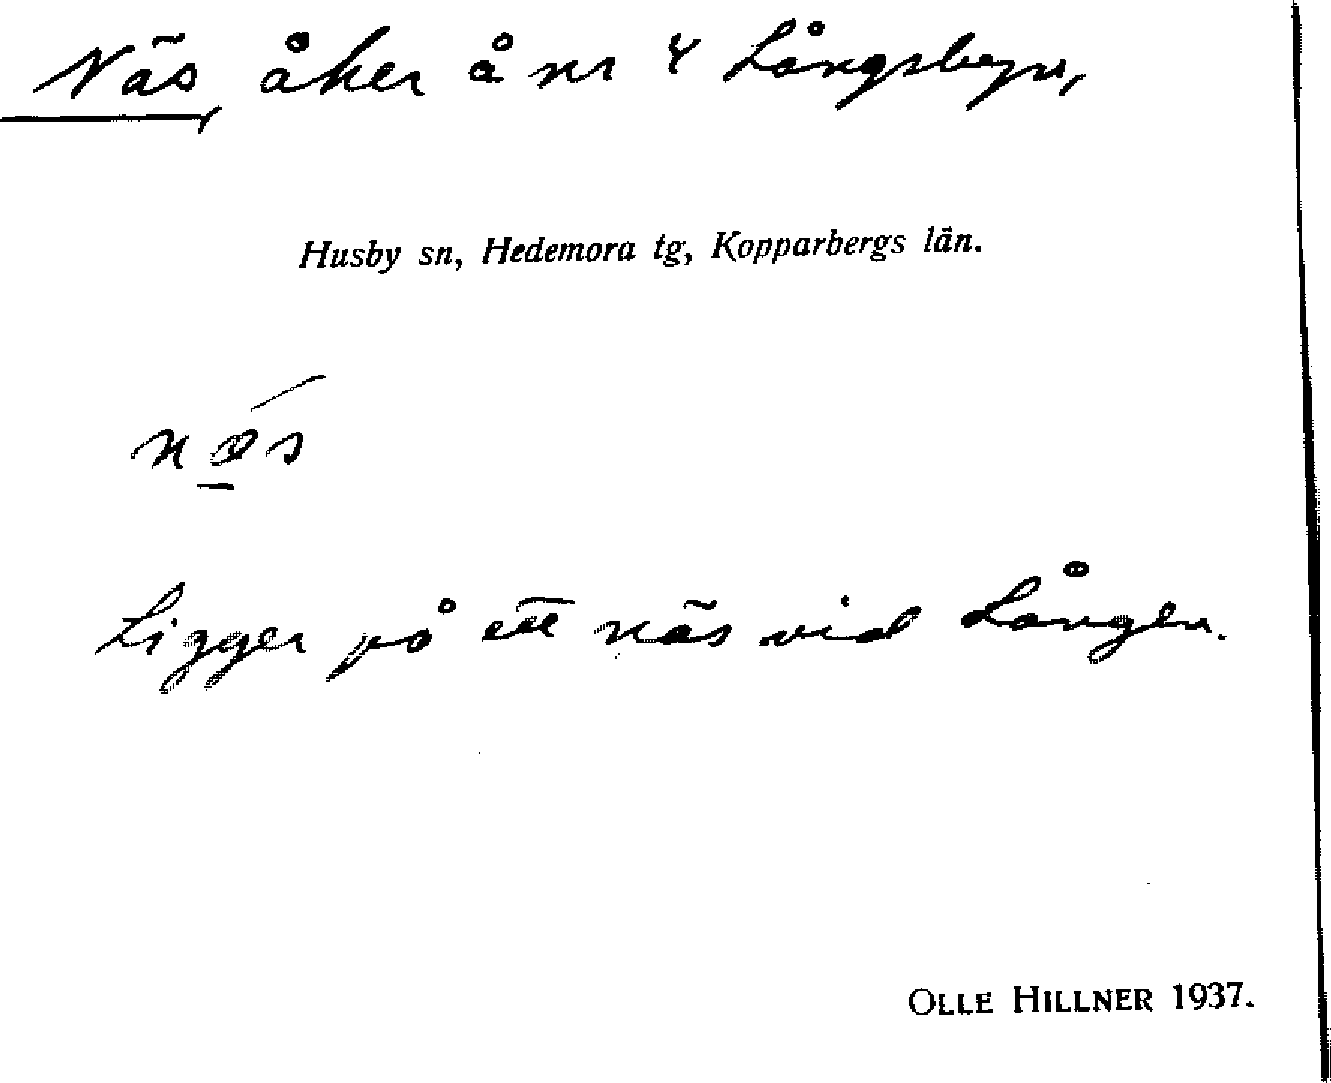 Näs, åker å nr 4 Långsbyn,
Husby sn, Hedemora tg, Kopparbergs län.
nä́s
Ligger på ett näs vid Lången.
OLLE HILLNER 1937.